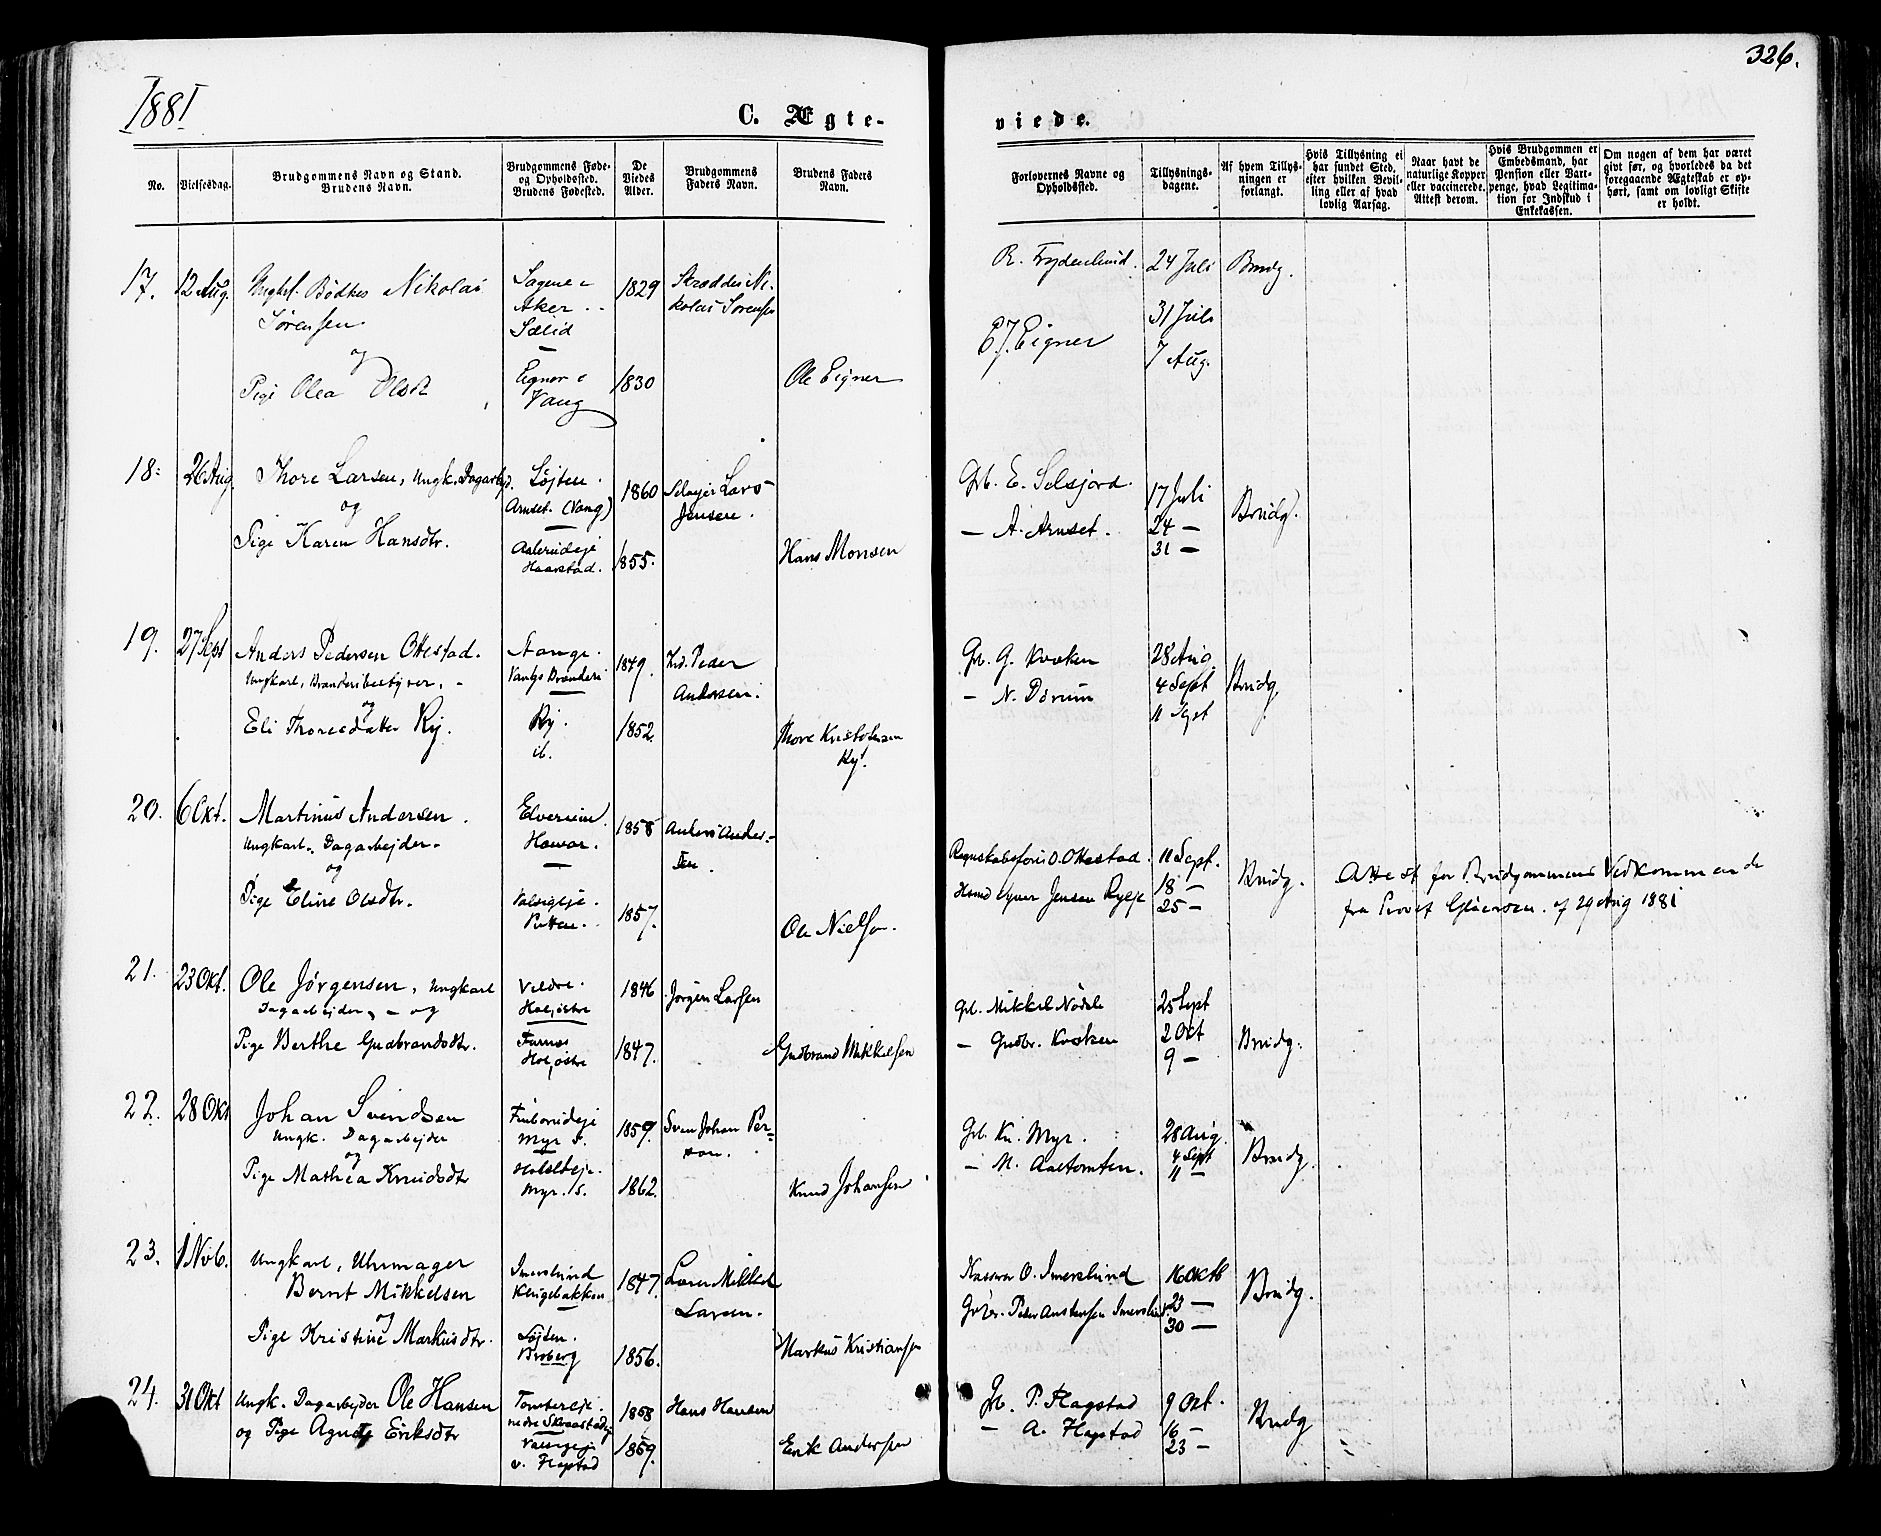 326.
1881
C. Ægte-
viede.
No.
Vielsesdag.
Brudgommens Navn og Stand.
Brudens Navn.
Brudgommens Føde-
og Opholdsted.
Brudens Fødested.
De
Viedes
Alder.
Brudgommens
Faders Navn.
Brudens Faders
Navn.
Forlovernes Navne og
Opholdssted.
Tillysnings-
dagene.
Af hvem Tillys-
ningen er
forlangt.
Hvis Tillysning ei
har fundet Sted,
efter hvilken Bevil-
ling eller af hvad
lovlig Aarsag.
Naar havt de
naturlige Kopper
eller vaccinerede.
Attest derom.
Hvis Brudgommen er
Embedsmand, har
Pension eller Vart-
penge, hvad Legitima-
tion for Indskud i
Enkekassen.
Om nogen af dem har været
givt før, og hvorledes da det
foregaaende Ægteskab er op-
hørt, samt om lovligt Skifte
er holdt.
17. 12 Aug.
Bødker Nikolai
Sørensen
og
Pige Olea Olsdt
Aker
Sælid
Vang
1829
1830
Skrædder Ni-
kolai Sørensen
Ole Eigner
R. Frydenlund.
E. J. Eigner
24 Juli
31 Juli
7 Aug.
Brudg.
18. 26 Aug.
Thore Larsen, Ungk. Dagarbejd.
og
Pige Karen Hansdtr.
Løjten.
Arnset (Vang)
Haarstad.
1860
1855.
Lars
Jensen.
Hans Monsen
Gb. E. Selsjord.
— A. Arnset.
17 Juli
24 —
31 —
Brudg.
19. 27 Sept
Anders Pedersen Ottestad.
Ungkarl, Brænderibestyrer,
og
Eli Thoresdatter Ry.
Stange.
Vangs Brænderi
Ry.
ib.
1849.
1852.
Peder
Andersen.
Thore Kristofersen
Ry.
Gb. G. Kvæken
— N. Dørum
28 Aug.
4 Sept
11 Sept
Brudg.
20. 6 Okt.
Martinus Andersen.
Ungkarl. Dagarbejder.
og
Pige Eline Olsdtr.
Elverum.
Hamar.
1858
1857.
Anders Ander-
sen.
Ole Nielsen.
O. Ottestad.
11 Sept.
18 —
25 —
Brudg.
Attest for Brudgommens Vedkommende
fra Provst Gløersen. af 29 Aug 1881
21. 23 Okt.
Ole Jørgensen, Ungkarl
Dagarbejder, og
Pige Berthe Gudbrandsdtr.
Veldre.
Furnes
1846
1847.
Jørgen Larsen
Gudbrand Mikkelsen
Gb. Mikkel
— Gudbr. Kvæken
25 Sept
2 Oct
9 —
Brudg.
22. 28 Okt
Johan Svendsen
Ungk. Dagarbejder
og
Pige Mathea Knudsdtr
Myr
Myr. S.
1859.
1862.
Sven Johan Per-
son.
Knud Johansen
Gb. Kn. Myr.
— M. Aaltomten.
28 Aug.
4 Sept
11 —
Brudg.
23. 1 Novb.
Ungkarl, Uhrmager
Bernt Mikkelsen
og
Pige Kristine Markusdtr.
Imerslund
Klingebakken
Løjten.
Broberg
1847.
1856.
Mikkel
Larsen.
Markus Kristiansen
O. Imerslund
Peder Amundsen Imerslund
16 Oktb
23 —
30 —
Brudg.
24. 31 Okt
Ungk. Dagarbejder Ole Hansen
og Pige Agnete Eriksdtr
v. Hagstad
1858
1859.
Hans Hansen
Erik Andersen
Gb. P. Hagstad
— A. Hagstad
9 Okt.
16 —
23 —
Brudg